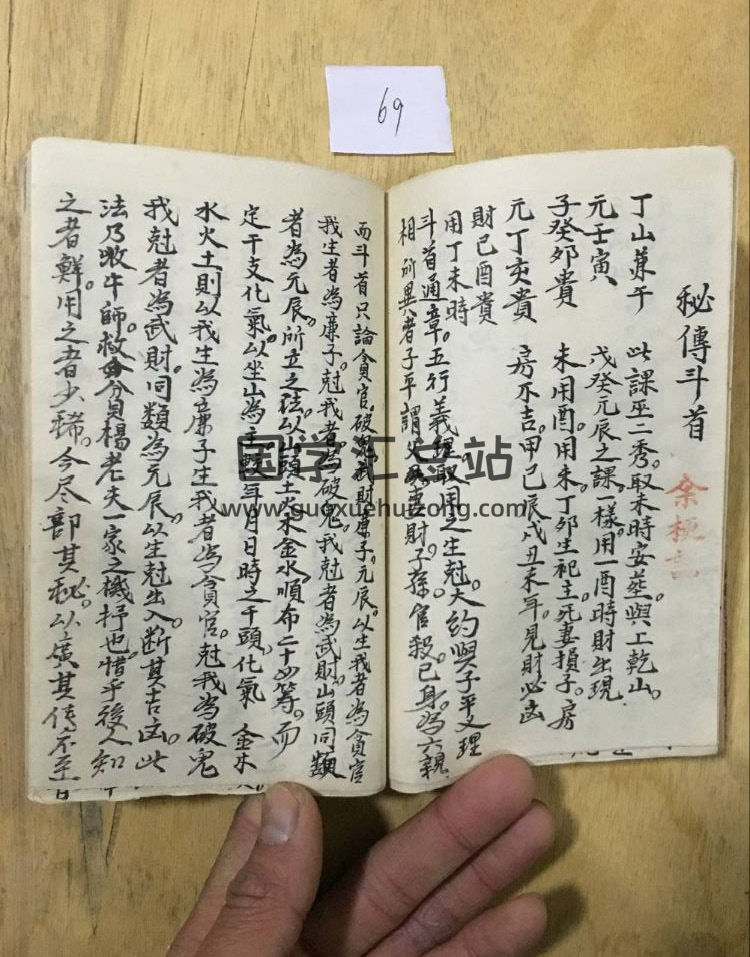 69
秘傳斗首
余梗記
丁山兼午 此課巫二秀。取未時安塟與上乾山。
元壬寅 戊癸元辰之課一樣。用一酉時財出現
子癸夘貴 未用酉。用未。丁夘生祀主。死妻損子。房
元丁亥貴 房不吉。甲己辰戌丑未年。見財必凶
財己酉貴
用丁未時
斗首通章。五行義理。取用之生尅。大約與子平义理
相所異者子平謂父母妻財子孫。官殺。己身。為六親
而斗首只論貪官。破鬼。武財廉子。元辰。以生我者為貪官
我生者為廉子。尅我者。為破鬼。我尅者為武財。山頭同類
者為元辰。所立之法。以山頭土火木金水。順布二十四筹。而
定干支化氣。以坐山為主。較年月日時之干頭。化氣 金木
水火土則以我生為廉子生我者為貪官。尅我為破鬼
我尅者為武財。同類為元辰。以生尅出入。断其吉凶。此
法乃牧牛師。救貧楊老夫一家之機抒也。惜乎後人知
之者鮮。用之者少稀。今尽部其秘。以廣其传。不至
国学汇总站
www.guoxuehuizong.com